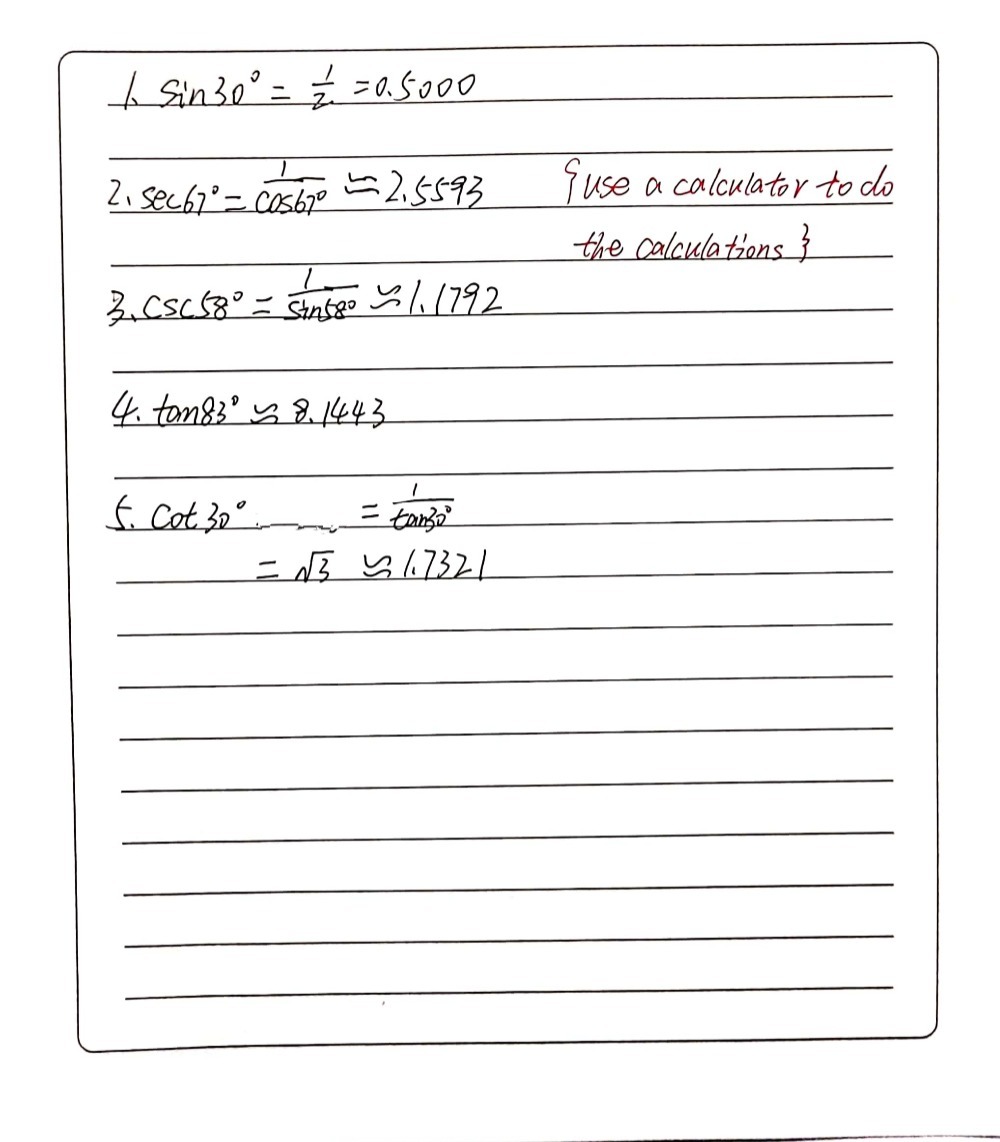 1. Sin30° = 1/2 = 0.5000
2. sec67° = 1/cos67° ≈ 2.5593 {use a calculator to do
the calculations}
3. csc58° = 1/sin58° ≈ 1.1792
4. tan83° ≈ 8.1443
5. Cot 30° = 1/tan30°
= √3 ≈ 1.7321